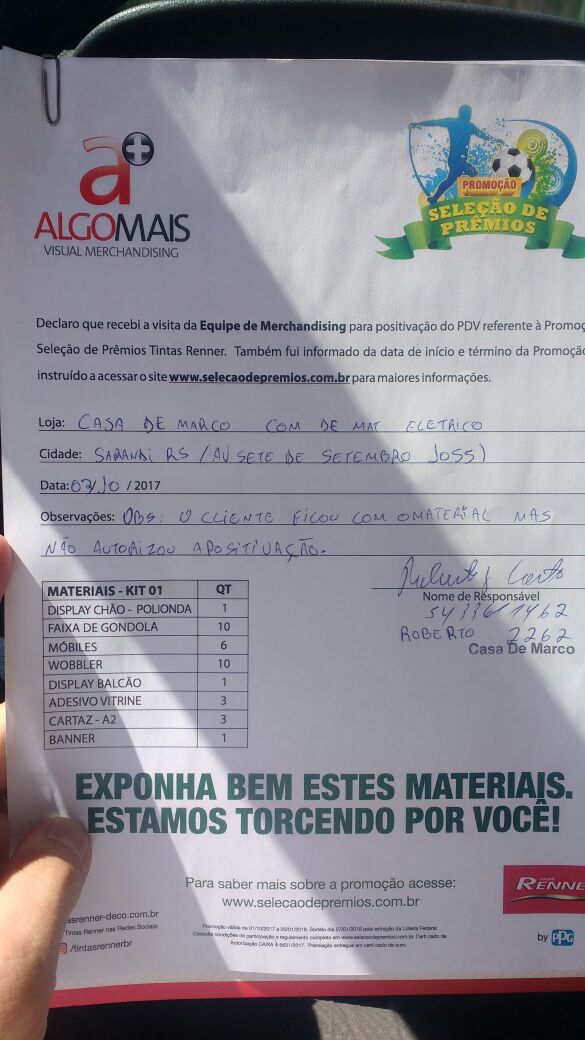 a+
ALGOMAIS
VISUAL MERCHANDISING
PROMOÇÃO
SELEÇÃO DE
PRÊMIOS
Declaro que recebi a visita da Equipe de Merchandising para positivação do PDV referente à Promoç
Seleção de Prêmios Tintas Renner. Também fui informado da data de início e término da Promoção
instruído a acessar o site www.selecaodepremios.com.br para maiores informações.
Loja: CASA DE MARCO COM DE MAT ELETRICO
Cidade: SARANDI RS / AV SETE DE SETEMBRO 1055)
Data: 07/10 / 2017
Observações: OBS: O CLIENTE FICOU COM O MATERIAL MAS
NÃO AUTORIZOU APOSITIVAÇÃO.
Nome de Responsável
ROBERTO 2262
Casa De Marco
MATERIAIS - KIT 01 QT
DISPLAY CHÃO - POLIONDA 1
FAIXA DE GONDOLA 10
MÓBILES 6
WOBBLER 10
DISPLAY BALCÃO 1
ADESIVO VITRINE 3
CARTAZ - A2 3
BANNER 1
EXPONHA BEM ESTES MATERIAIS.
ESTAMOS TORCENDO POR VOCÊ!
Para saber mais sobre a promoção acesse:
www.selecaodepremios.com.br
asrenner-deco.com.br
Tintas Renner nas Redes Sociais:
/tintasrennerbr
Promoção válida de 01/10/2017 a 20/01/2018. Sorteio dia 27/01/2018 pela extração da Loteria Federal.
Consulte condições de participação e regulamento completo em www.selecaodepremios.com.br. Certi cado de
Autorização CAIXA 4-5631/2017. Premiação entregue em certi cado de ouro.
TINTAS
RENNE
by PPG